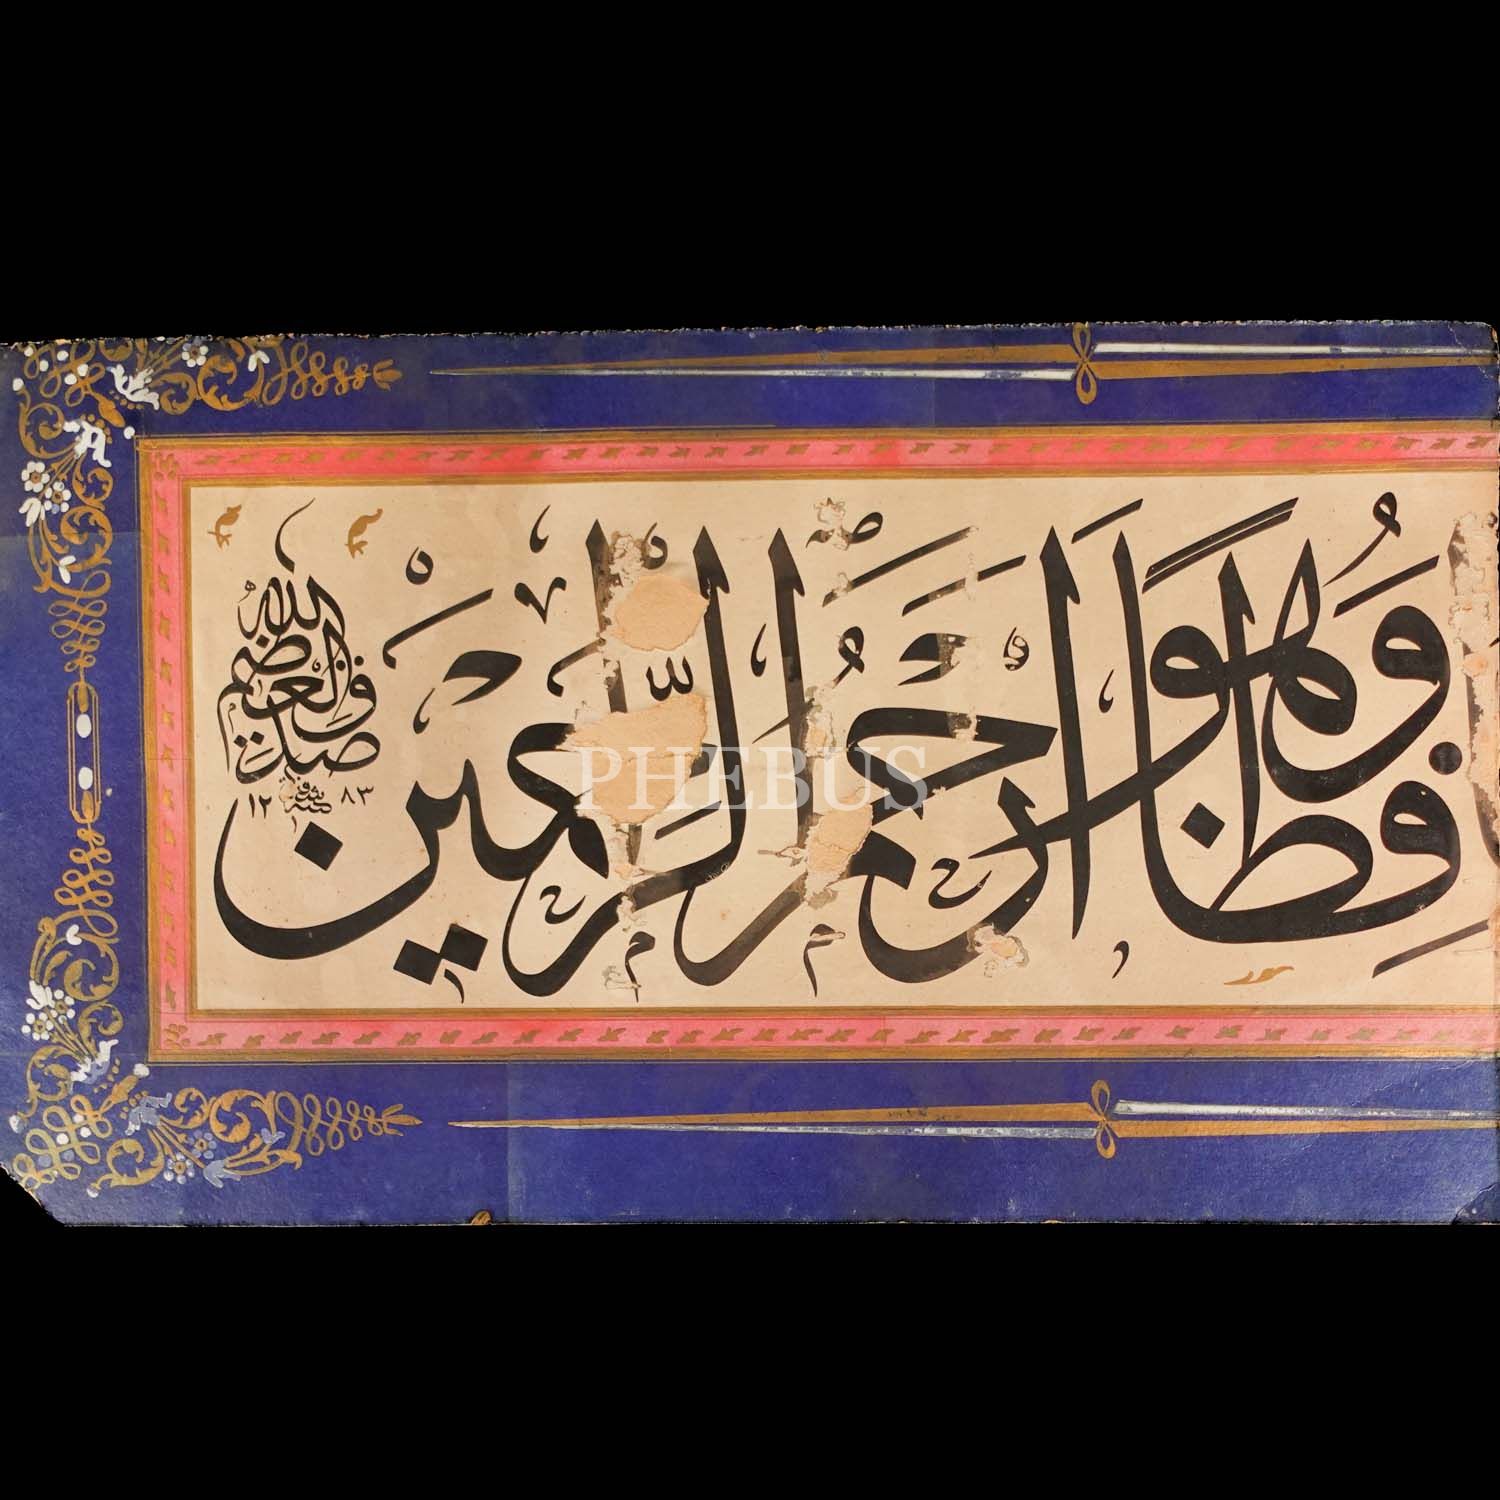 فِظًا وَهُوَ اَرْحَمُ الرَّاحِمِينَ
صدق الله العظيم
١٢٨٣
PHEBUS